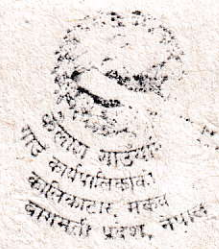 कैलाश गाउँपालिका
गाउँ कार्यपालिकाको
कालिकाटार, मकवा
बागमती प्रदेश, नेपाल